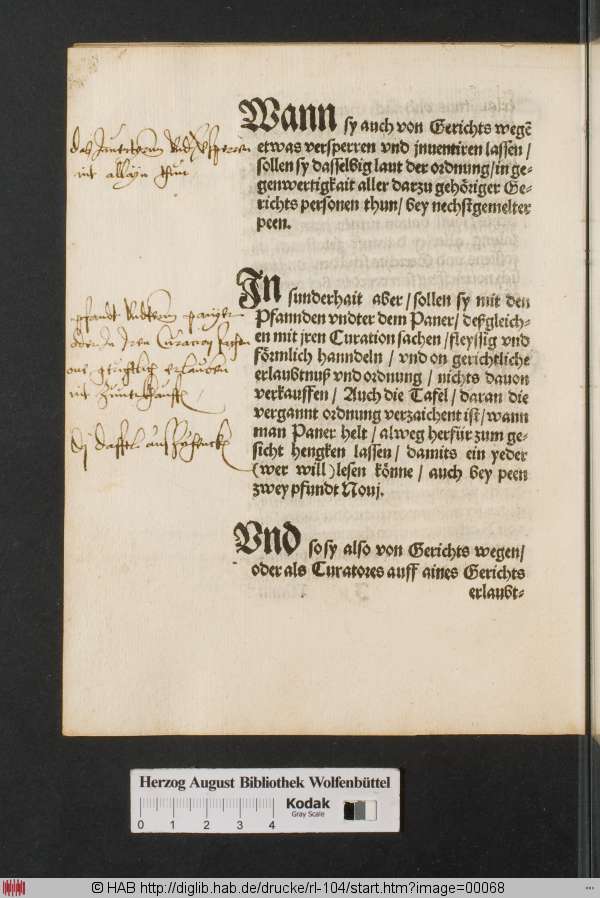 Wann sy auch von Gerichts wegẽ
etwas versperren vnd jnuentiren lassen /
sollen sy dasselbig laut der ordnung / in ge-
genwertigkait aller darzu gehöriger Ge-
richts personen thun / bey nechstgemelter
peen.
In sunderhait aber / sollen sy mit den
Pfannden vndter dem Paner / deßgleich-
en mit jren Curation sachen / fleyssig vnd
förmlich hanndeln / vnd on gerichtliche
erlaubtnuß vnd ordnung / nichts dauon
verkauffen / Auch die Tafel / daran die
vergannt ordnung verzaichent ist / wann
man Paner helt / alweg herfür zum ge-
sicht hengken lassen / damits ein yeder
(wer will) lesen könne / auch bey peen
zwey pfundt Nouj.
Vnd so sy also von Gerichts wegen /
oder als Curatores auff aines Gerichts
erlaubt-
Herzog August Bibliothek Wolfenbüttel
Kodak
Gray Scale
0 1 2 3 4
© HAB http://diglib.hab.de/drucke/rl-104/start.htm?image=00068